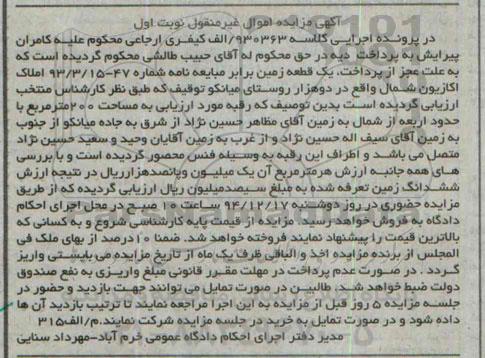 آگهی مزایده اموال غیرمنقول نوبت اول
در پرونده اجرایی کلاسه ۹۳۰۳۶۳/الف کیفری ارجاعی محکوم علیه کامران
پیرایش به پرداخت دیه در حق محکوم له آقای حبیب طالشی محکوم گردیده است که
به علت عجز از پرداخت، یک قطعه زمین برابر مبایعه نامه شماره ۴۷-۹۳/۳/۱۵ املاک
اکازیون شمال واقع در دوهزار روستای میانکو توقیف که طبق نظر کارشناس منتخب
ارزیابی گردیده است بدین توصیف که رقبه مورد ارزیابی به مساحت ۲۰۰مترمربع با
حدود اربعه از شمال به زمین آقای مظاهر حسین نژاد از شرق به جاده میانکو از جنوب
به زمین آقای سیف اله حسین نژاد و از غرب به زمین آقایان وحید و سعید حسین نژاد
متصل می باشد و اطراف این رقبه به وسیله فنس محصور گردیده است و با بررسی
های همه جانبه ارزش هرمترمربع آن یک میلیون وپانصدهزارریال در نتیجه ارزش
ششدانگ زمین تعرفه شده به مبلغ سیصدمیلیون ریال ارزیابی گردیده که از طریق
مزایده حضوری در روز دوشنبه ۹۴/۱۲/۱۷ ساعت ۱۰ صبح در محل اجرای احکام
دادگاه به فروش خواهد رسید. مزایده از قیمت پایه کارشناسی شروع و به کسانی که
بالاترین قیمت را پیشنهاد نمایند فروخته خواهد شد. ضمنا ۱۰درصد از بهای ملک فی
المجلس از برنده مزایده اخذ و الباقی ظرف یک ماه از تاریخ مزایده می بایستی واریز
گردد . در صورت عدم پرداخت در مهلت مقرر قانونی مبلغ واریزی به نفع صندوق
دولت ضبط خواهد شد. طالبین در صورت تمایل می توانند جهت بازدید و حضور در
جلسه مزایده ۵ روز قبل از مزایده به این اجرا مراجعه نمایند تا ترتیب بازدید آن ها
داده شود و در صورت تمایل به خرید در جلسه مزایده شرکت نمایند.م/الف۳۱۵
مدیر دفتر اجرای احکام دادگاه عمومی خرم آباد-مهرداد سنایی